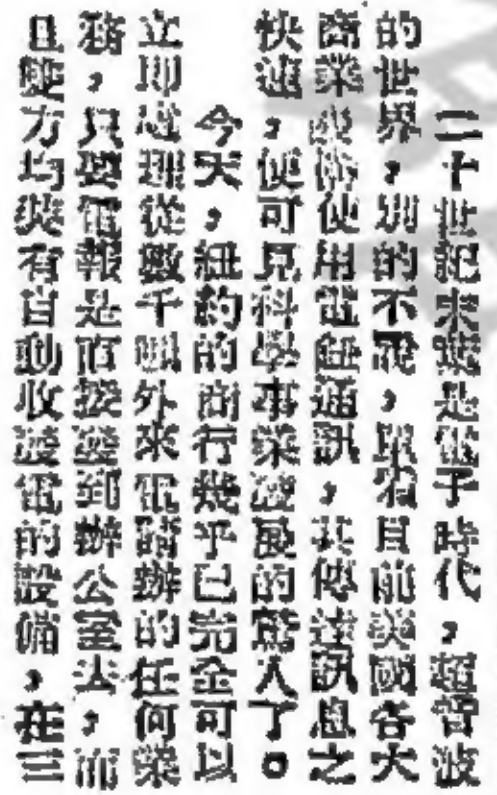 二十世紀末葉是電子時代，超音波
的世界，別的不說，單看目前美國各大
商業機構使用電鈕通訊，其傳達訊息之
快速，便可見科學事業發展的驚人了。
今天，紐約的商行幾乎已完全可以
立即處理從數千哩外來電請辦的任何業
務，只要電報是直接發到辦公室去，而
且雙方均裝有自動收發電的設備，在三